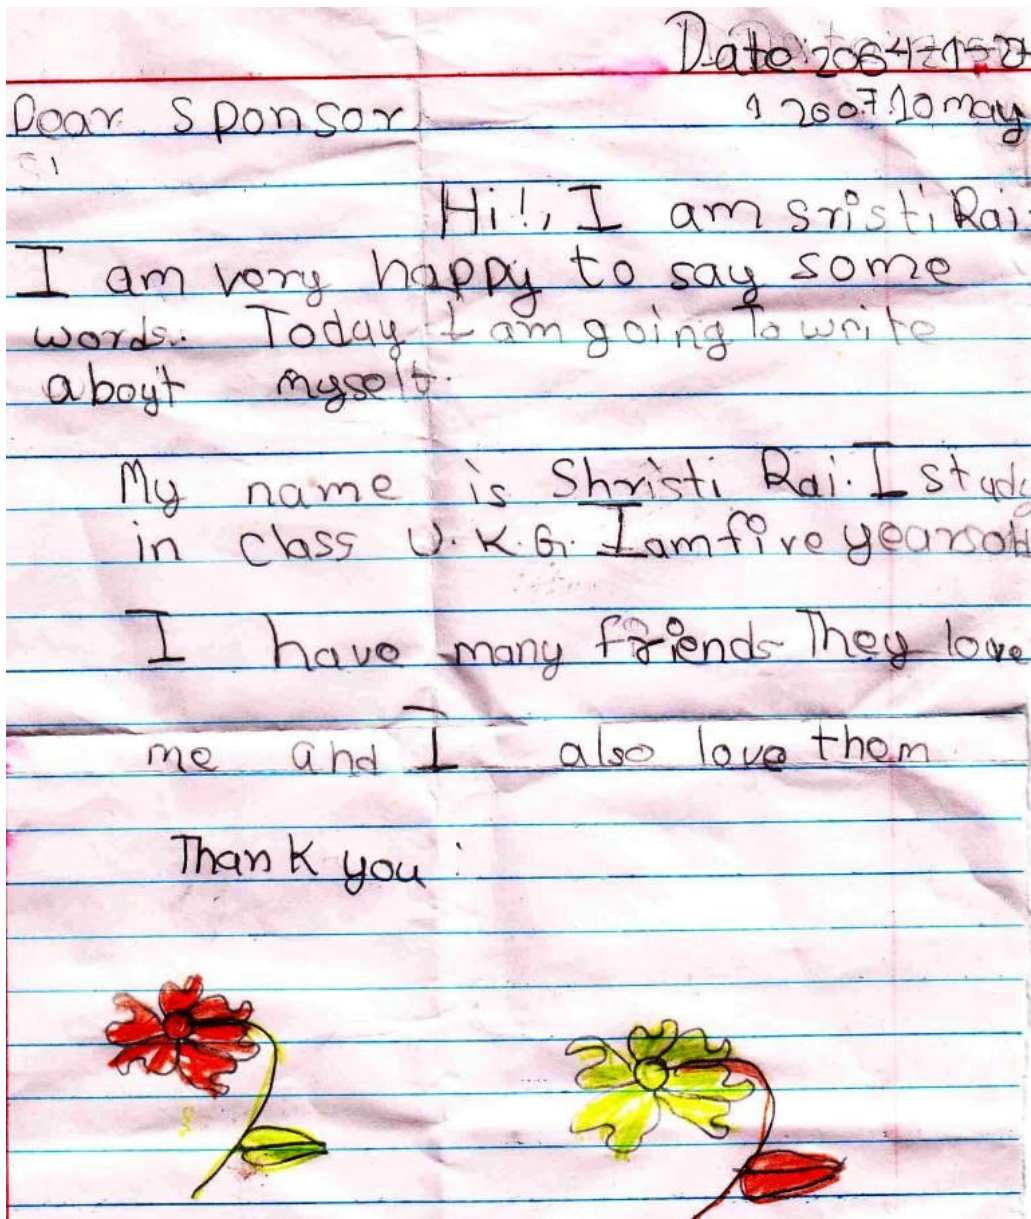 Date: 2064-1-27
Dear Sponsor
1 2007.10 may
Hi!, I am sristi Rai.
I am very happy to say some
words. Today I am going To write
aboyt myself.
My name is Shristi Rai. I study
in class U.K.G. I am five years old
I have many friends They love
me and I also love them
Thank you.